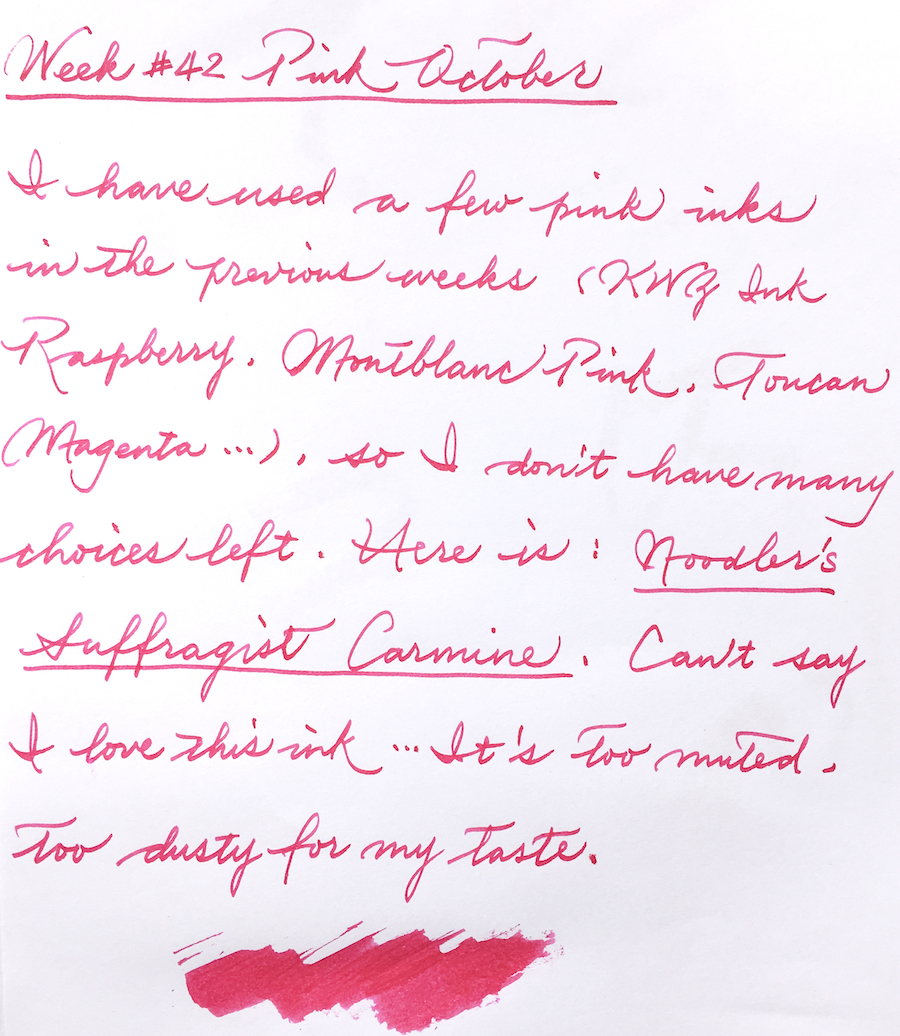 Week #42 Pink October
I have used a few pink inks
in the previous weeks (KWZ Ink
Raspberry, Montblanc Pink, Toucan
Magenta ...), so I don't have many
choices left. Here is: Noodler's
Suffragist Carmine. Can't say
I love this ink ... It's too muted,
too dusty for my taste.